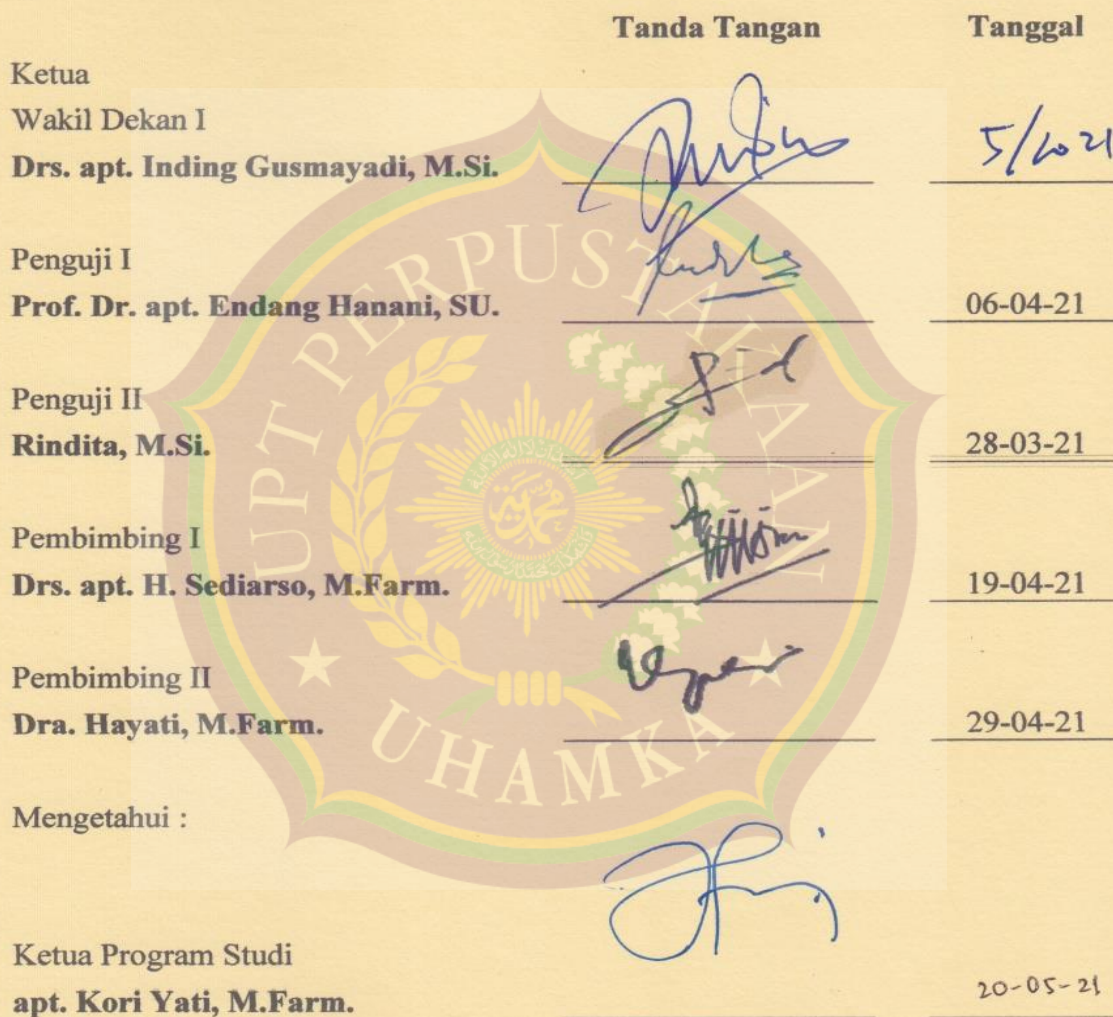 Tanda Tangan Tanggal
Ketua
Wakil Dekan I
Drs. apt. Inding Gusmayadi, M.Si.
Penguji I
Prof. Dr. apt. Endang Hanani, SU. 06-04-21
Penguji II
Rindita, M.Si. 28-03-21
Pembimbing I
Drs. apt. H. Sediarso, M.Farm. 19-04-21
Pembimbing II
Dra. Hayati, M.Farm. 29-04-21
Mengetahui :
Ketua Program Studi
apt. Kori Yati, M.Farm. 20-05-21
UPT PERPUSTAKAAN
UHAMKA